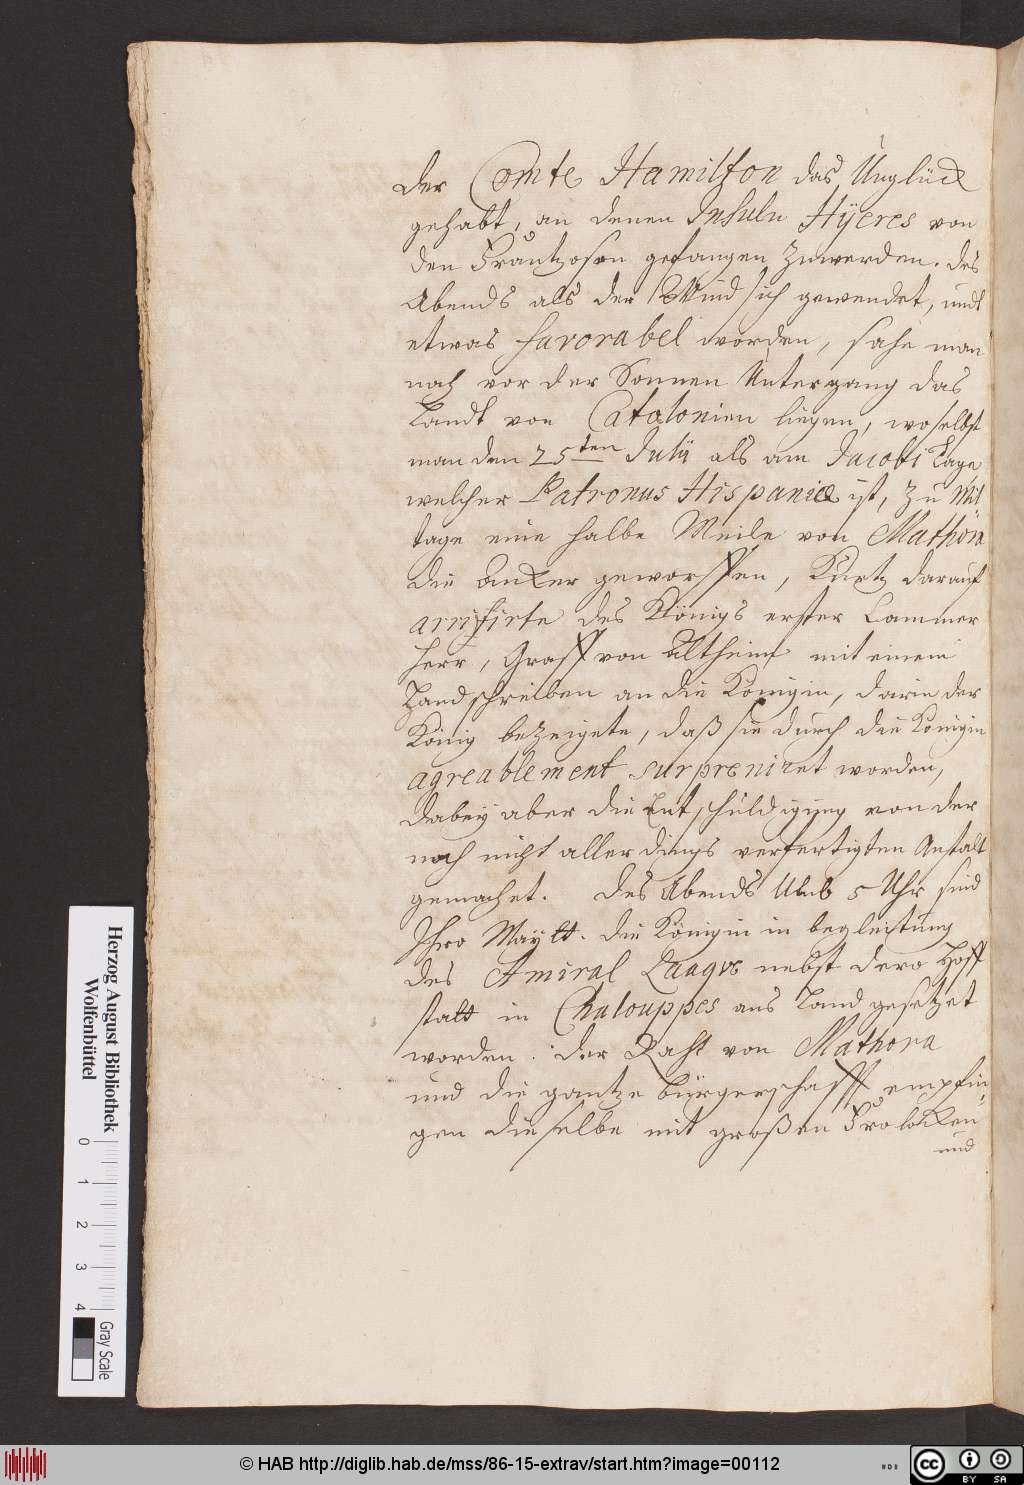 der Comte Hamilton das Unglück
gehabt, an denen Insuln Hÿeres von
den Frantzosen gefangen zuwerden. des
Abends als der Wind sich gewendet, undt
etwas favorabel worden, sahe man
noch vor der Sonnen Untergang das
Landt von Catalonien liegen, woselbst
man den 25ten Julÿ als am Jacobi Tage
welcher Patronus Hispaniæ ist, zu Mit
tage eine halbe Meile von Mathöra
die Anker geworffen, Kurtz darauf
arrifirte des Königs erster Cammer
Herr, Graff von Altheim mit einem
Handschreiben an die Königin, darin der
König bezeigete, daß sie durch die Königin
agreablement surpreniret worden,
dabeÿ aber die Entschuldigung von der
noch nicht allerdings verfertigten Anstalt
gemachet. Des Abends Umb 5 Uhr sind
Ihro Maytt. die Königin in begleitung
des Amiral Laaqve nebst dero Hoff
statt in Chalouppes ans Land gesetzet
worden. Der Raht von Mathora
und die gantze Bürgerschafft empfin
gen dieselbe mit großen Frolocken
und
Herzog August Bibliothek
Wolfenbüttel
0 1 2 3 4
Gray Scale
© HAB http://diglib.hab.de/mss/86-15-extrav/start.htm?image=00112
cc BY SA